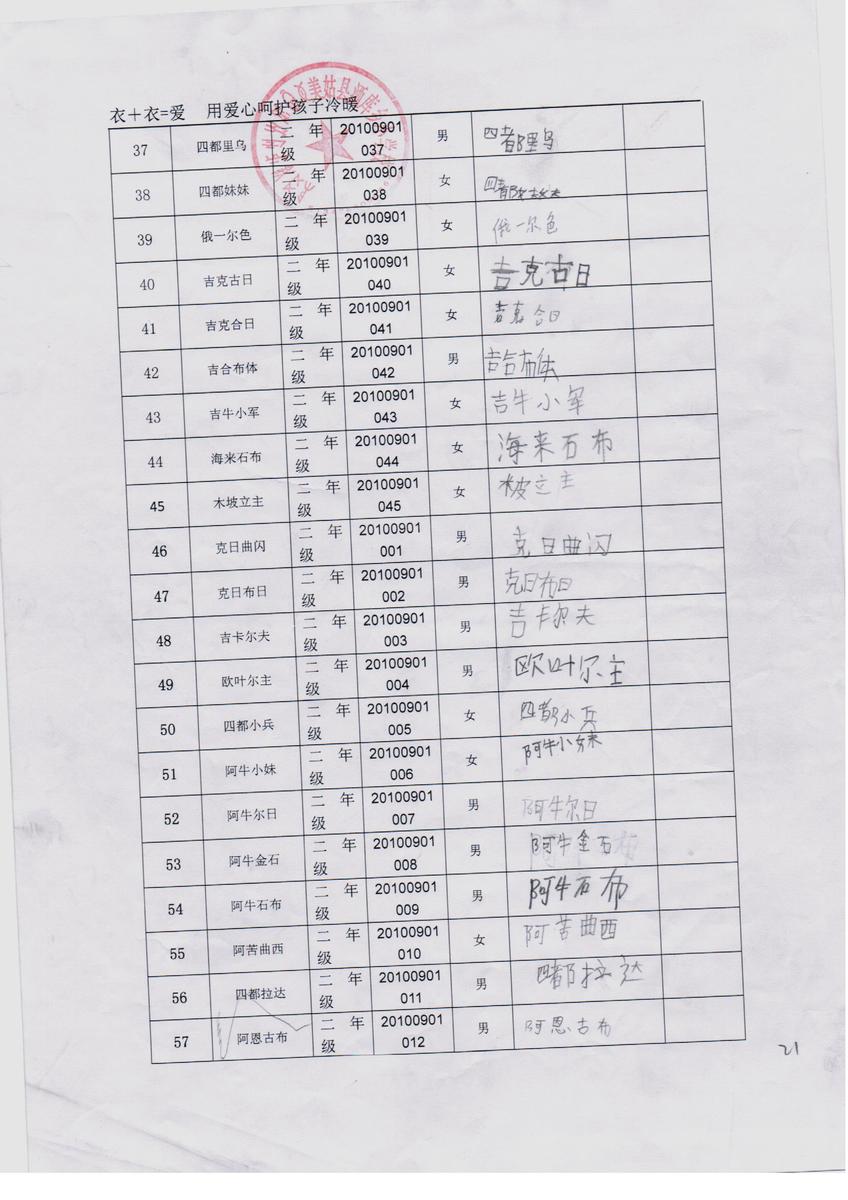 衣＋衣=爱 用爱心呵护孩子冷暖
37 四都里乌 二年级 20100901037 男 四都里乌
38 四都妹妹 二年级 20100901038 女 四都妹妹
39 俄一尔色 二年级 20100901039 女 俄一尔色
40 吉克古日 二年级 20100901040 女 吉克古日
41 吉克合日 二年级 20100901041 女 吉克合日
42 吉合布体 二年级 20100901042 男 吉合布体
43 吉牛小军 二年级 20100901043 女 吉牛小军
44 海来石布 二年级 20100901044 女 海来石布
45 木坡立主 二年级 20100901045 女 木坡立主
46 克日曲闪 二年级 20100901001 男 克日曲闪
47 克日布日 二年级 20100901002 男 克日布日
48 吉卡尔夫 二年级 20100901003 男 吉卡尔夫
49 欧叶尔主 二年级 20100901004 男 欧叶尔主
50 四都小兵 二年级 20100901005 女 四都小兵
51 阿牛小妹 二年级 20100901006 女 阿牛小妹
52 阿牛尔日 二年级 20100901007 男 阿牛尔日
53 阿牛金石 二年级 20100901008 男 阿牛金石
54 阿牛石布 二年级 20100901009 男 阿牛石布
55 阿苦曲西 二年级 20100901010 女 阿苦曲西
56 四都拉达 二年级 20100901011 男 四都拉达
57 阿恩古布 二年级 20100901012 男 阿恩古布
21